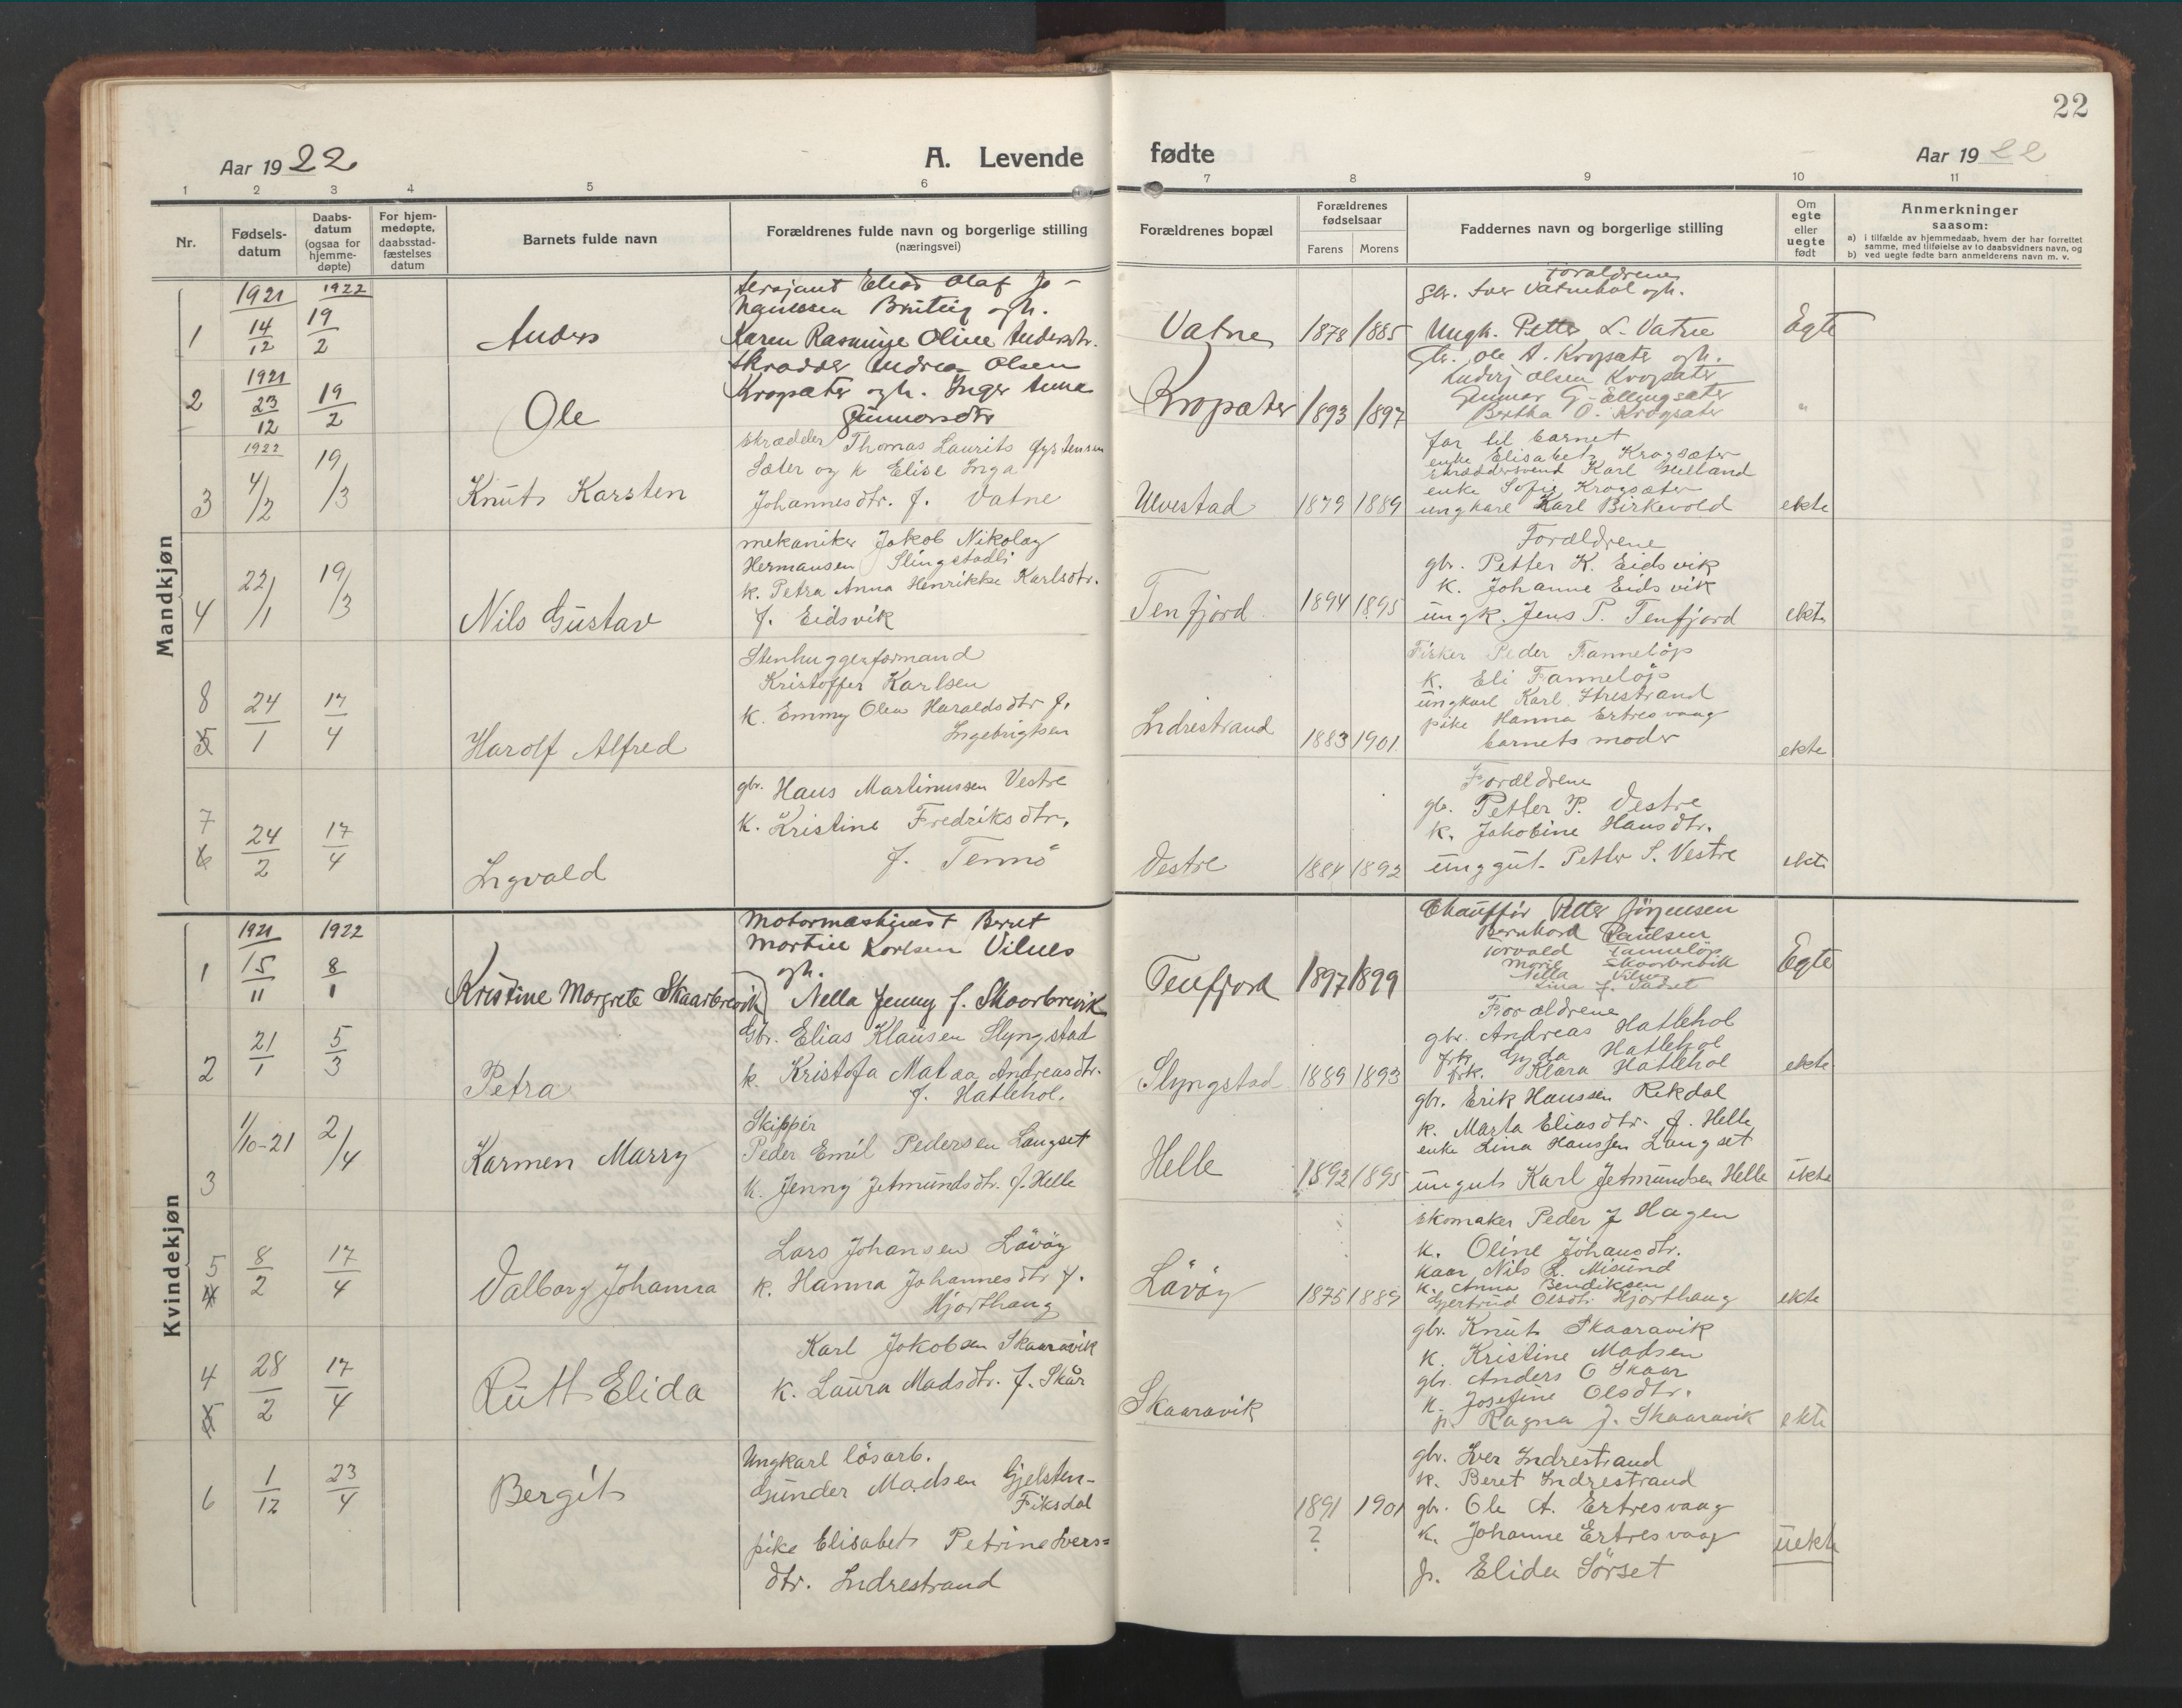 22
Aar 1922
A. Levende fødte
Aar 1922
1 2 3 4 5 6 7 8 9 10 11
Nr.
Fødsels-
datum
Daabs-
datum
(ogsaa for
hjemme-
døpte)
For hjem-
medøpte,
daabsstad-
fæstelses
datum
Barnets fulde navn
Forældrenes fulde navn og borgerlige stilling
(næringsvei)
Forældrenes bopæl
Forældrenes
fødselsaar
Farens Morens
Faddernes navn og borgerlige stilling
Om
egte
eller
uegte
født
Anmerkninger
saasom:
a) i tilfælde av hjemmedaab, hvem der har forrettet
samme, med tilføielse av to daabsvidners navn, og
b) ved uegte fødte barn anmelderens navn m. v.
Mandkjøn
1
1921
14/12
1922
19/2
Anders
Olaf Jo-
ogh.
Karen Rasmine Oline Andersdtr.
Vatne
1878 1885
Forældrene
gbr. Iver Vatnehol ogh.
Ungk. Petter L. Vatne
Egte
2
1921
23/12
19/2
Ole
Skrædder Andreas Olsen
Krogsæter ogh. Inger Anna
Gunnarsdtr
Krogsæter
1893 1897
Gbr. Ole A. Krogsæter ogh.
Olsen Krogsæter
Gunnar G. Ellingsæter
Bertha O. Krogsæter
"
3
1922
4/2
19/3
Knut Karsten
skrædder Thomas Laurits Gystensen
Sæter og k Elise Inga
Johannesdtr. f. Vatne
Ulvestad
1879 1889
far til barnet
enke Elisabet Krogsæter
skræddersvend Karl Helland
enke Sofie Krogsæter
ungkarl Karl Birkevold
ekte
4
22/1
19/3
Nils Gustav
mekaniker Jakob Nikolay
Hermansen Slingstadli
k. Petra Anna Henrikke Karlsdtr.
f. Eidsvik
Tenfjord
1894 1895
Forældrene
gbr. Petter K. Eidsvik
k. Johanne Eidsvik
ungk. Jens P. Tenfjord
ekte
8
5
24/1
17/4
Harolf Alfred
Stenhuggerformand
Kristoffer Karlsen
k. Emmy Olea Haraldsdtr f.
Ingebrigtsen
Indrestrand
1883 1901
Fisker Peder Fanneløp
k. Eli Fanneløp
ungkarl Karl Ytrestrand
pike Hanna Ertresvaag
barnets moder
ekte
7
6
24/2
17/4
Ingvald
gbr. Hans Martinussen Vestre
k. Kristine Fredriksdtr.
f. Tennø
Vestre
1884 1892
Forældrene
gbr. Petter P. Vestre
k. Jakobine Hansdtr.
unggut Petter S. Vestre
ekte
Kvindekjøn
1
1921
15/11
1922
8/1
Kristine Margrete Skaarbrevik
Motormaskinist Bernt
Martin Karlsen Vilnes
ogh.
Nella Jenny f. Skaarbrevik
Tenfjord
1897 1899
Chauffør Petter Jørgensen
Bernhard Paulsen
Torvald Fanneløp
Marie Skaarbrevik
Nella Vilnes
Lina J. Vadset
Egte
2
21/1
5/3
Petra
Gbr. Elias Klausen Slyngstad
k. Kristofa Matea Andreasdtr.
f. Hatlehol.
Slyngstad
1889 1893
Forældrene
gbr. Andreas Hatlehol
frk. Gyda Hatlehol
frk. Klara Hatlehol
ekte
3
1/10-21
2/4
Karmen Marry
Skipper
Peder Emil Pedersen Langset
k. Jenny Jetmundsdtr. f. Helle
Helle
1892 1895
gbr. Erik Hanssen Rekdal
k. Marta Eliasdtr. f. Helle
enke Lina Hanssen Langset
ungut Karl Jetmundsen Helle
ekte
5
4
8/2
17/4
Valborg Johanna
Lars Johansen Løvøy
k. Hanna Johannesdtr f.
Hjorthaug
Løvøy
1875 1889
skomaker Peder J Hagen
k. Oline Johansdtr.
kaar Nils L. Misund
k. Anna Bendiksen
Gjertrud Olsdtr. Hjorthaug
ekte
4
5
28/2
17/4
Rutt Elida
Karl Jakobsen Skaaravik
k. Laura Madsdtr. f. Skår
Skaaravik
gbr. Knut Skaaravik
k. Kristine Madsen
gbr. Anders O Skaar
k. Josefine Olsdtr.
p. Ragna J. Skaaravik
ekte
6
1/12
23/4
Bergit
Ungkarl løsarb.
Gunder Madsen Gjelsten-
Fiksdal
pike Elisabet Petrine Ivers=
dtr. Indrestrand
1891 1901
?
gbr. Iver Indrestrand
k. Beret Indrestrand
gbr. Ole A. Ertresvaag
k. Johanne Ertresvaag
p. Elida Sørset
uekte